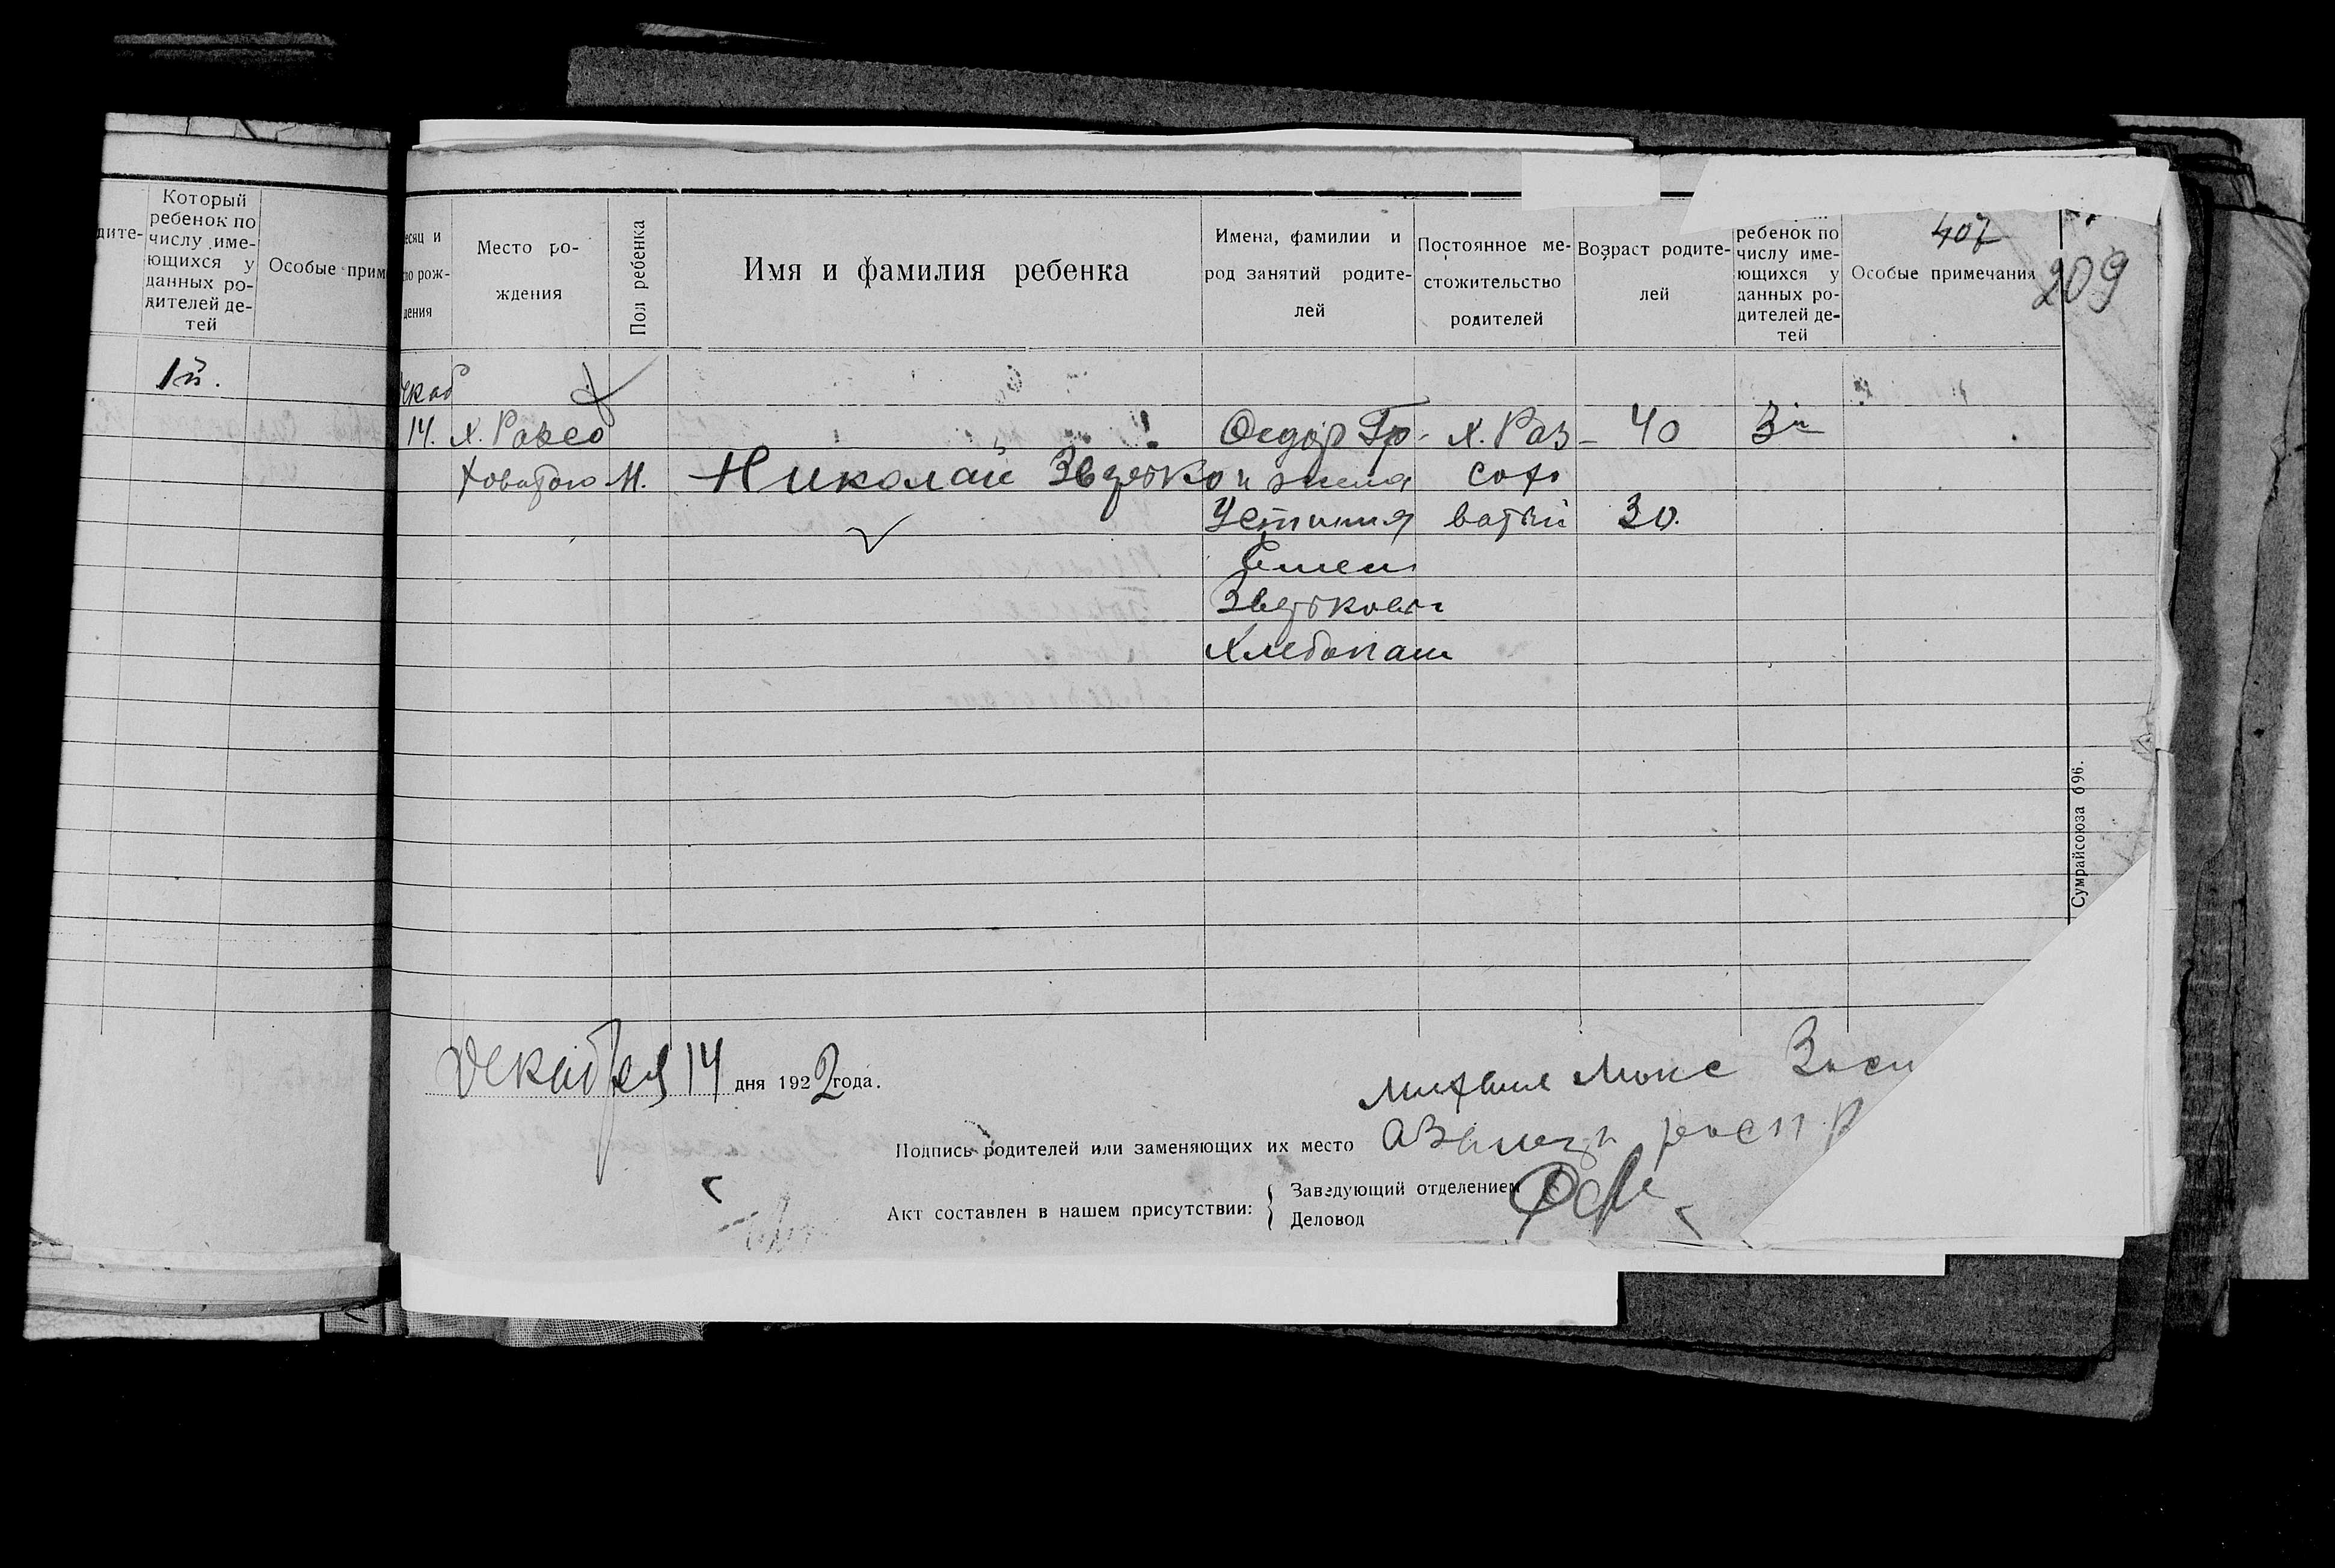 дите-
Который
ребенок по
числу име-
ющихся у
данных ро-
дителей де-
тей
Особые прим
1й.
есяц и
ло рож-
дения
Место ро-
ждения
Пол ребенка
Имя и фамилия ребенка
Имена, фамилии и
род занятий родите-
лей
Постоянное ме-
стожительство
родителей
Возраст родите-
лей
ребенок по
числу име-
ющихся у
данных ро-
дителей де-
тей
407
Особые примечания
209
екаб
14. Х. Разсо Федор Гр- Х. Раз- 40 3й
ховатою М. Николай и жена сохо
Устиния ватый 30.
Хлебопаш
Сумрайсоюза 696.
Декабря 14 дня 1922 года.
Подпись родителей или заменяющих их место
Акт составлен в нашем присутствии:
Заведующий отделением
Деловод